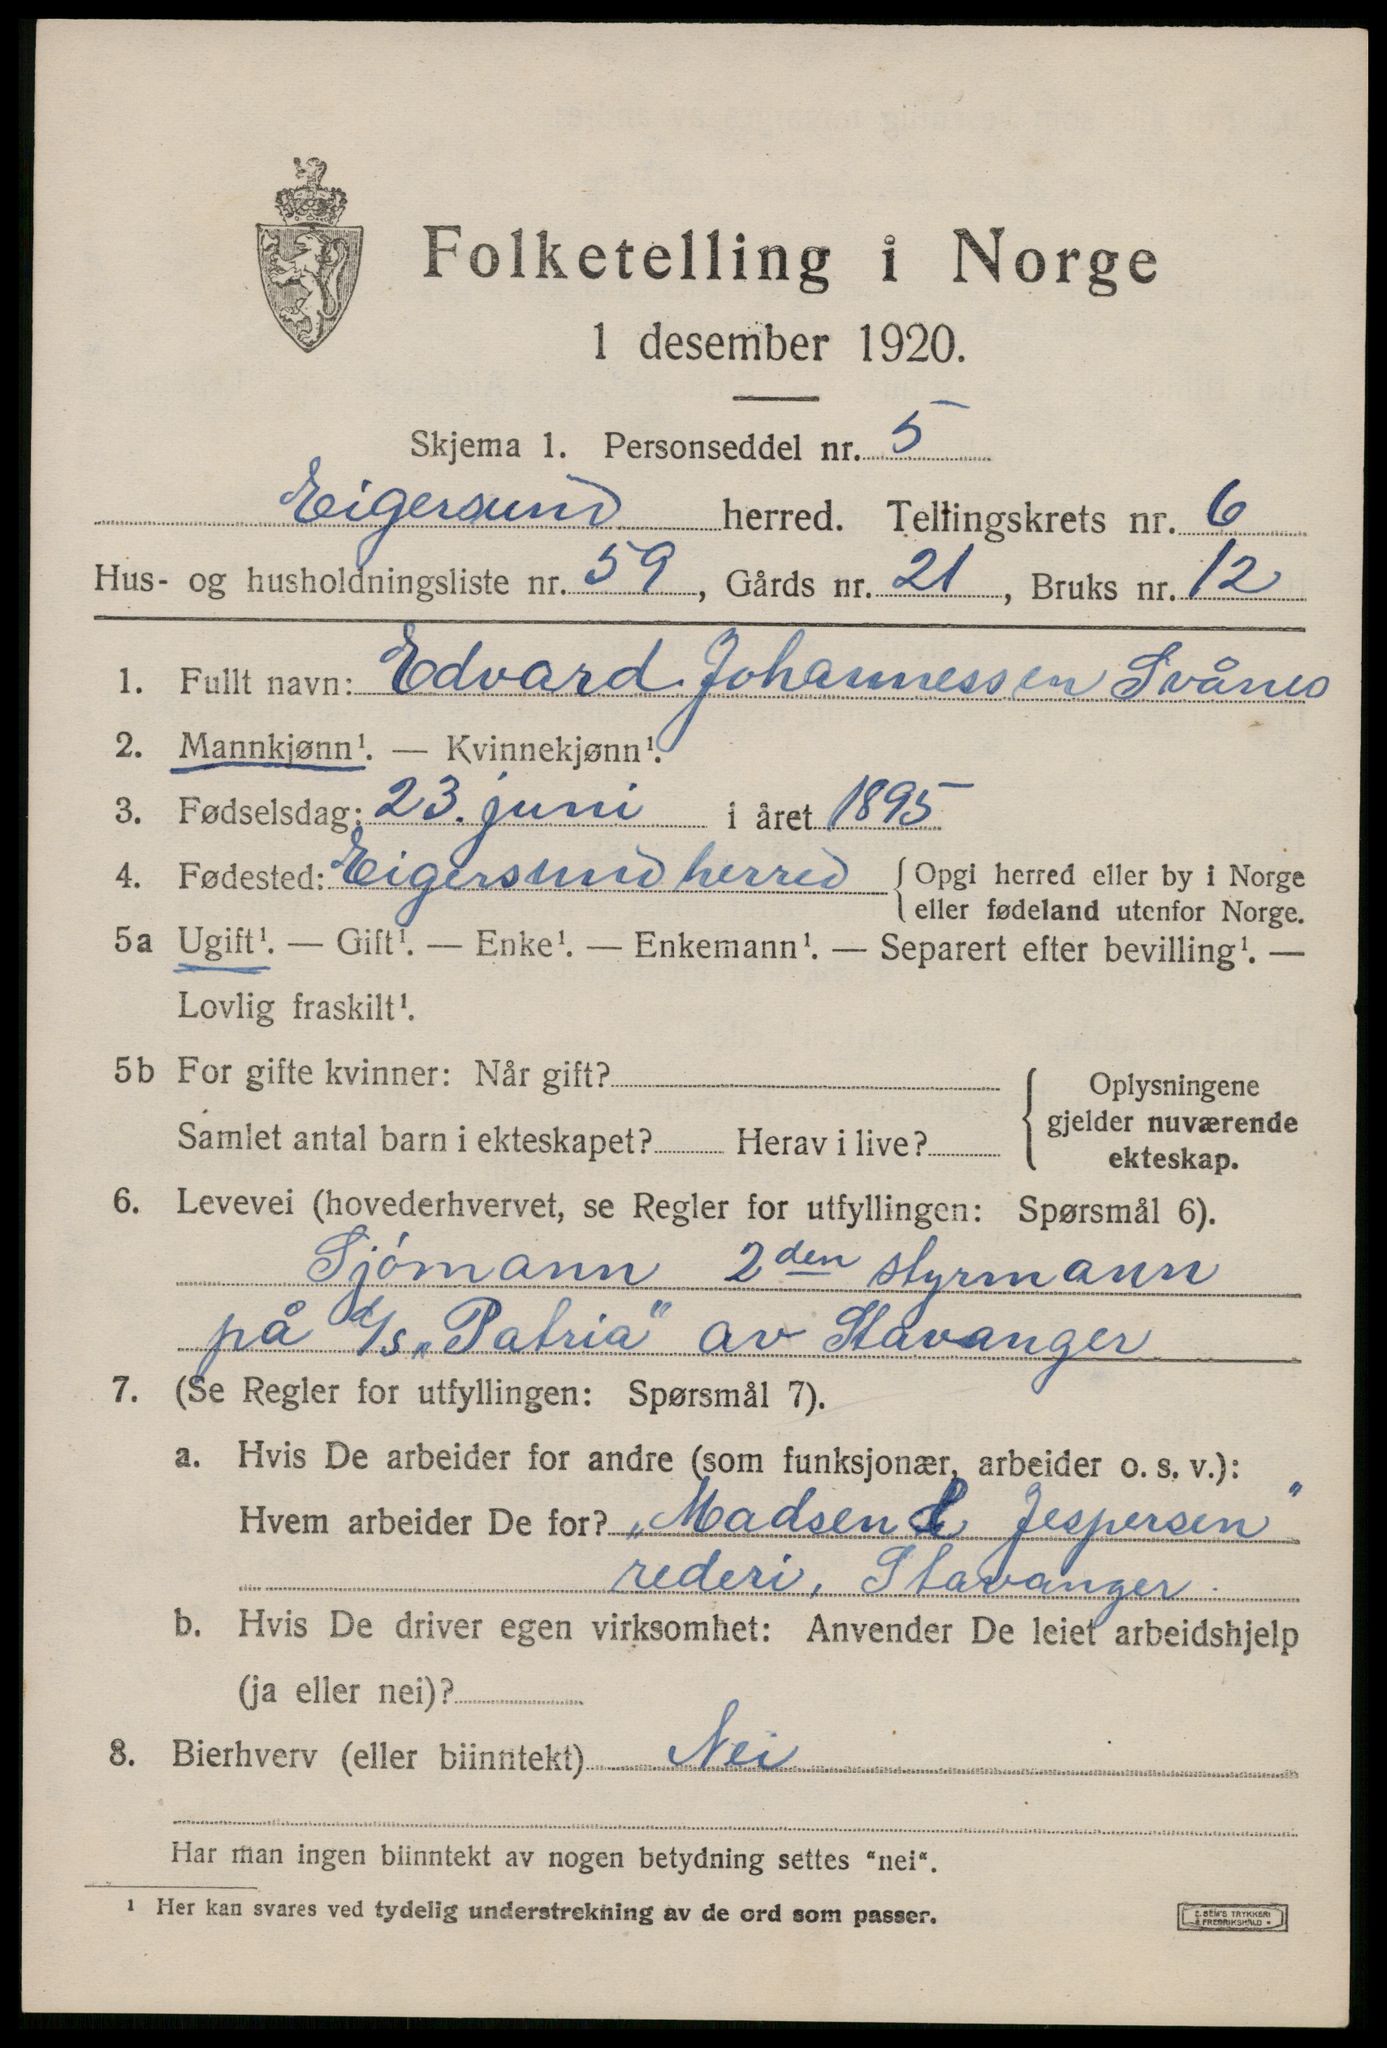 Folketelling i Norge
1 desember 1920.
Skjema 1. Personseddel nr. 5
Eigersund herred. Tellingskrets nr. 6
Hus- og husholdningsliste nr. 59, Gårds nr. 21, Bruks nr. 12
1. Fullt navn: Edvard Johannessen Svånes
2. Mannkjønn¹. — Kvinnekjønn¹.
3. Fødselsdag: 23. juni i året 1895
4. Fødested: Eigersund herred { Opgi herred eller by i Norge
eller fødeland utenfor Norge.
5a Ugift¹. — Gift¹. — Enke¹. — Enkemann¹. — Separert efter bevilling¹. —
Lovlig fraskilt¹.
5b For gifte kvinner: Når gift?
Samlet antal barn i ekteskapet? Herav i live?
{ Oplysningene
gjelder nuværende
ekteskap.
6. Levevei (hovederhvervet, se Regler for utfyllingen: Spørsmål 6).
Sjómann 2den styrmann
på d/s „Patria“ av Stavanger
7. (Se Regler for utfyllingen: Spørsmål 7).
a. Hvis De arbeider for andre (som funksjonær, arbeider o. s. v.):
Hvem arbeider De for? „Madsen & Jespersen“
rederi, Stavanger.
b. Hvis De driver egen virksomhet: Anvender De leiet arbeidshjelp
(ja eller nei)?
8. Bierhverv (eller biinntekt) Nei
Har man ingen biinntekt av nogen betydning settes “nei“.
¹ Her kan svares ved tydelig understrekning av de ord som passer.
E. SEM'S TRYKKERI
FREDRIKSHALD